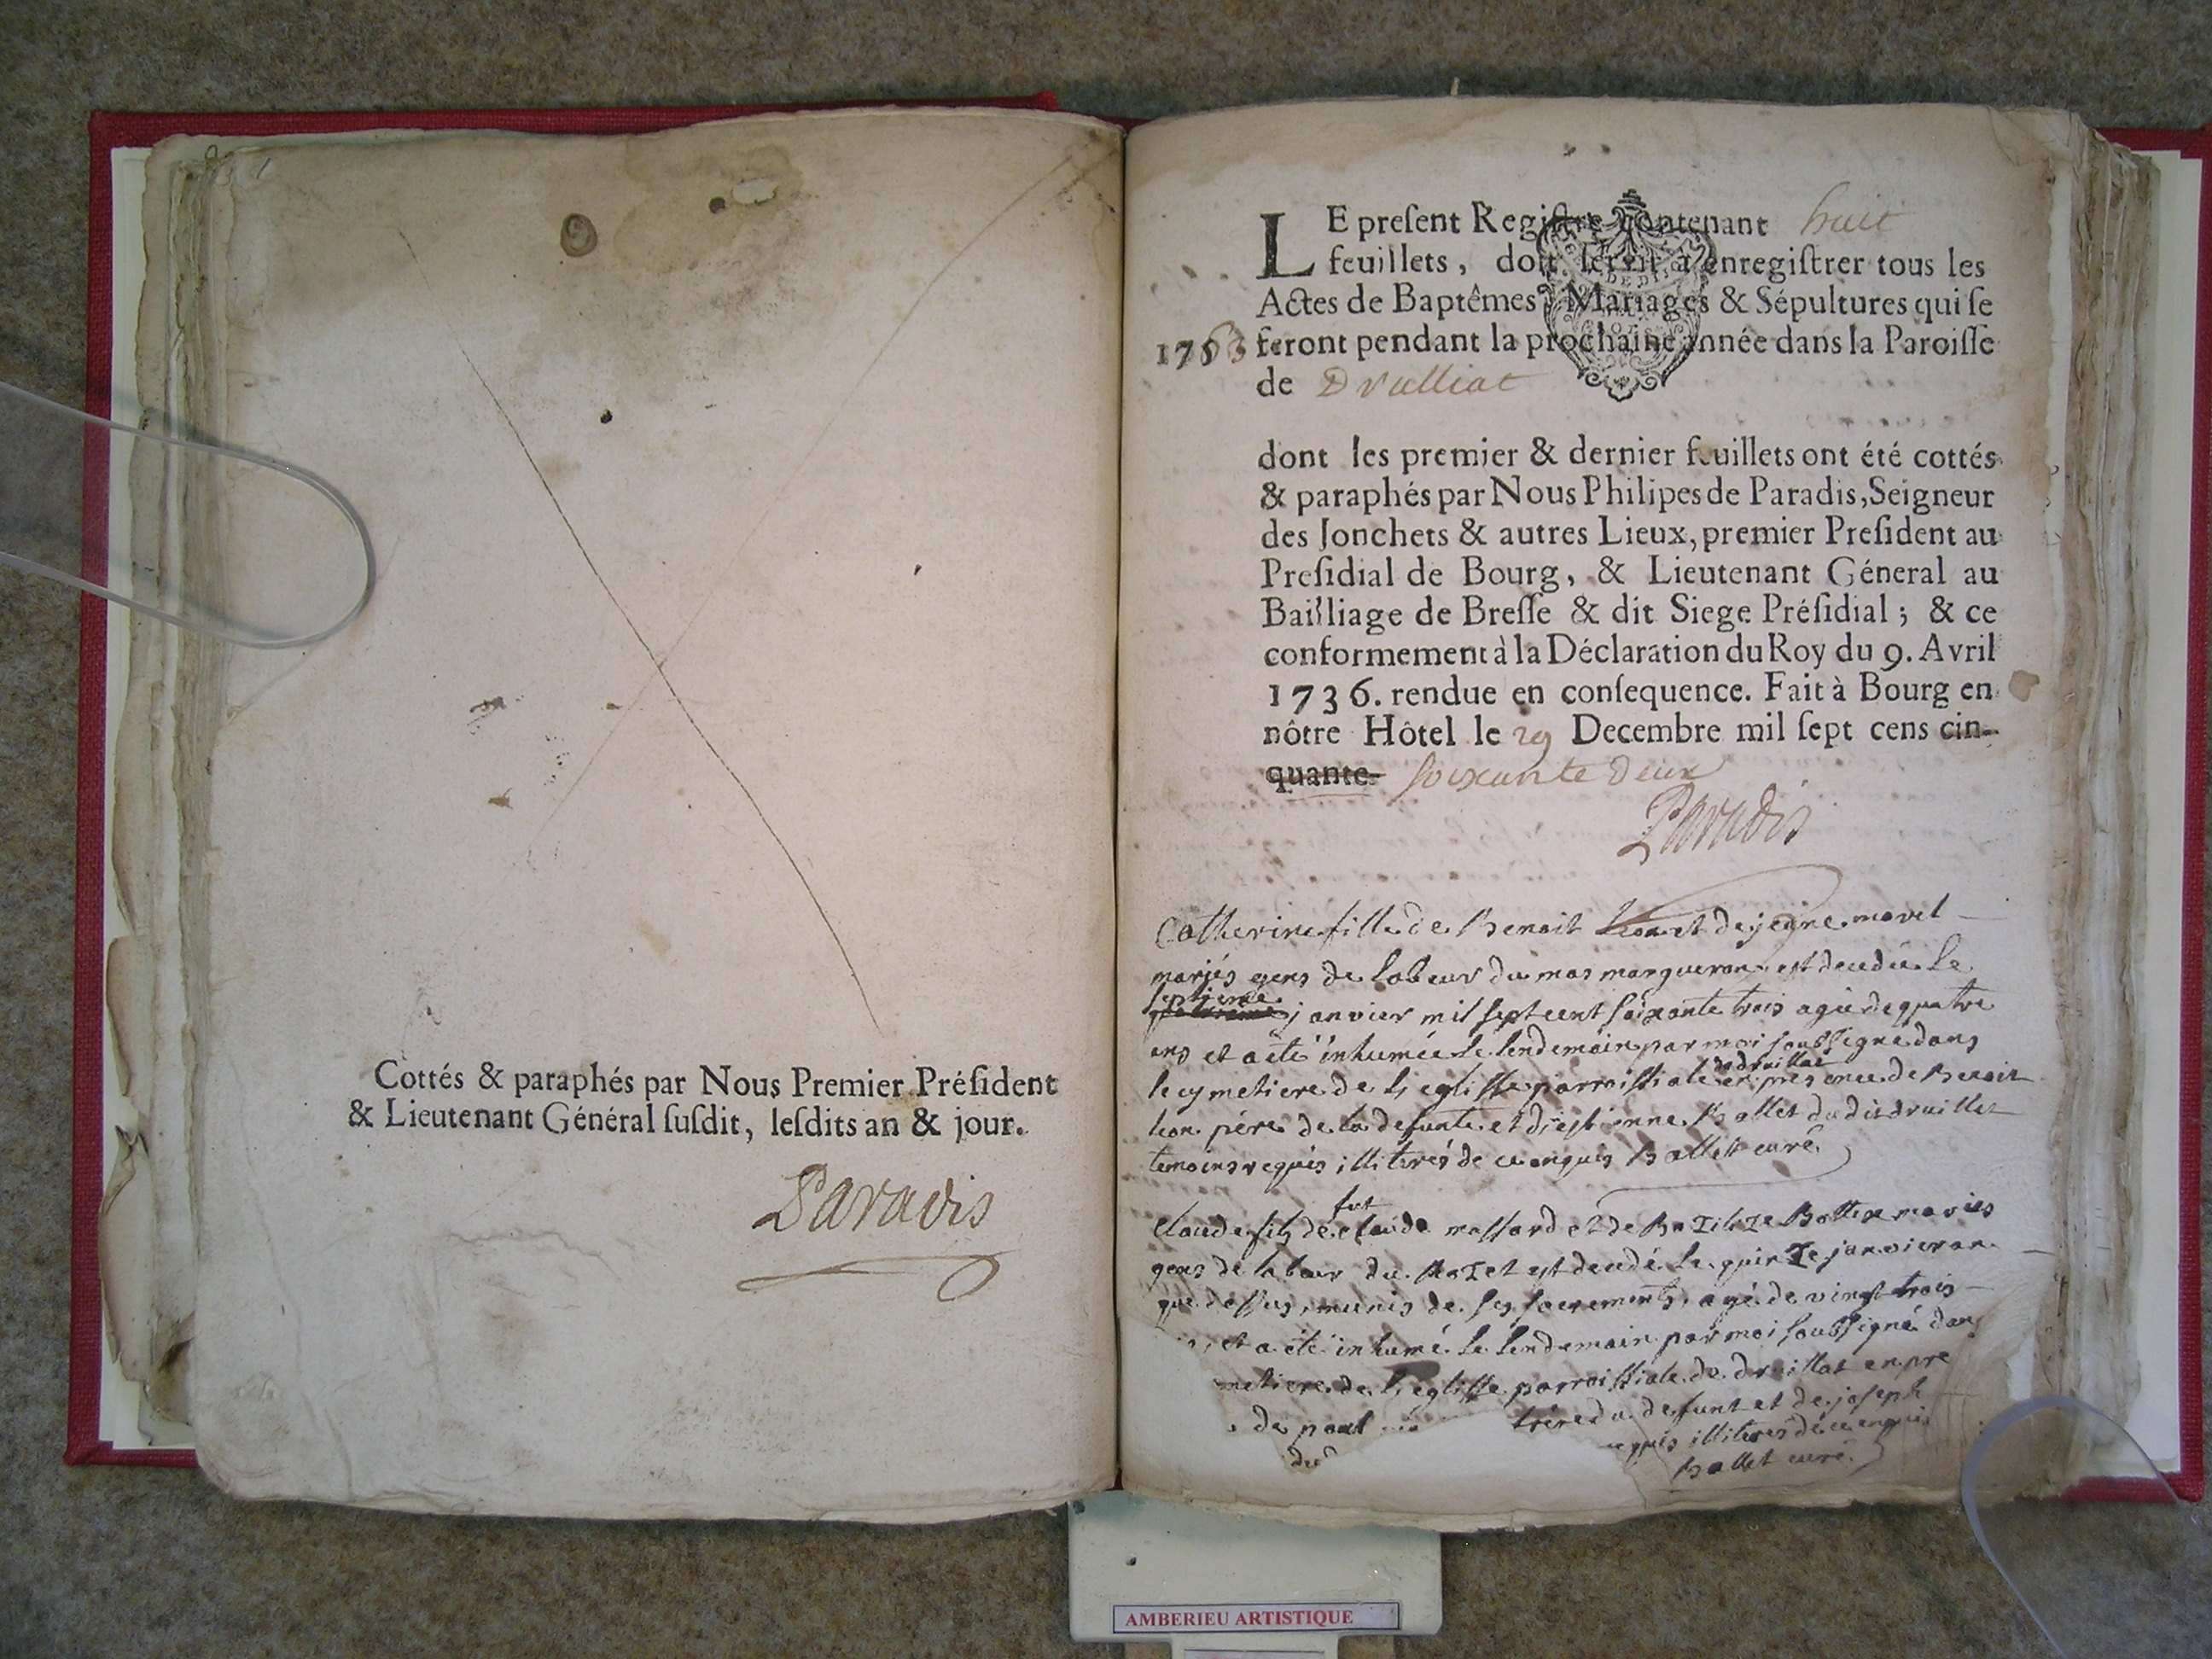 Cottés & paraphés par Nous Premier Préſident
& Lieutenant Général ſuſdit, leſdits an & jour.
Paradis
LE preſent Regiſtre contenant huit
feuillets, doit ſervir à enregiſtrer tous les
Actes de Baptêmes, Mariages & Sépultures qui ſe
1763 feront pendant la prochaine année dans la Paroiſſe
de Druilliat
dont les premier & dernier feuillets ont été cottés
& paraphés par Nous Philipes de Paradis, Seigneur
des Jonchets & autres Lieux, premier Preſident au
Preſidial de Bourg, & Lieutenant Géneral au
Bailliage de Breſſe & dit Siege Préſidial ; & ce
conformement à la Déclaration du Roy du 9. Avril
1736. rendue en conſequence. Fait à Bourg en
nôtre Hôtel le 29 Decembre mil ſept cens cin-
quante- soixante deux
Paradis
Catherine fille de Benoit et de jeanne morel
mariés gens de labeur du mas margueron est decedée le
septieme
janvier mil sept cent soixante trois agée de quatre
ans et a été inhumée le lendemain par moi soussigné dans
de druillat
le cymetiere de l'eglisse parroissiale en presence de Benoit
leon pére de la defunte et d'estienne Ballet du dit druillat
temoins requis illiterés de ce enquis Ballet curé
fut
Claude fils de claude massard et de Bazilize mariés
gens de labeur du Mozet est decedé le quinze janvier an
que dessus, munis de ses sacrements, agé de vingt trois
et a été inhumé le lendemain par moi soussigné dans
metiere de l'eglisse parroissiale de druillat en pre
de paul frère du defunt et de joseph
du requis illiterés de ce enquis
Ballet curé
AMBERIEU ARTISTIQUE